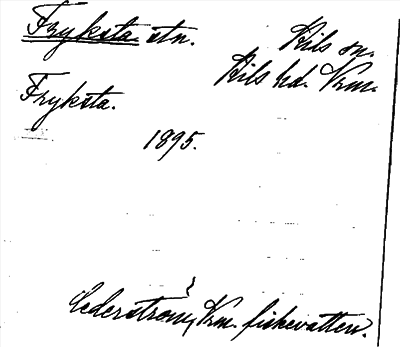 Fryksta stn.
Kils sn.
Kils hd. Vrm.
Fryksta.
1895.
Cederström, Vrm. fiskevatten.